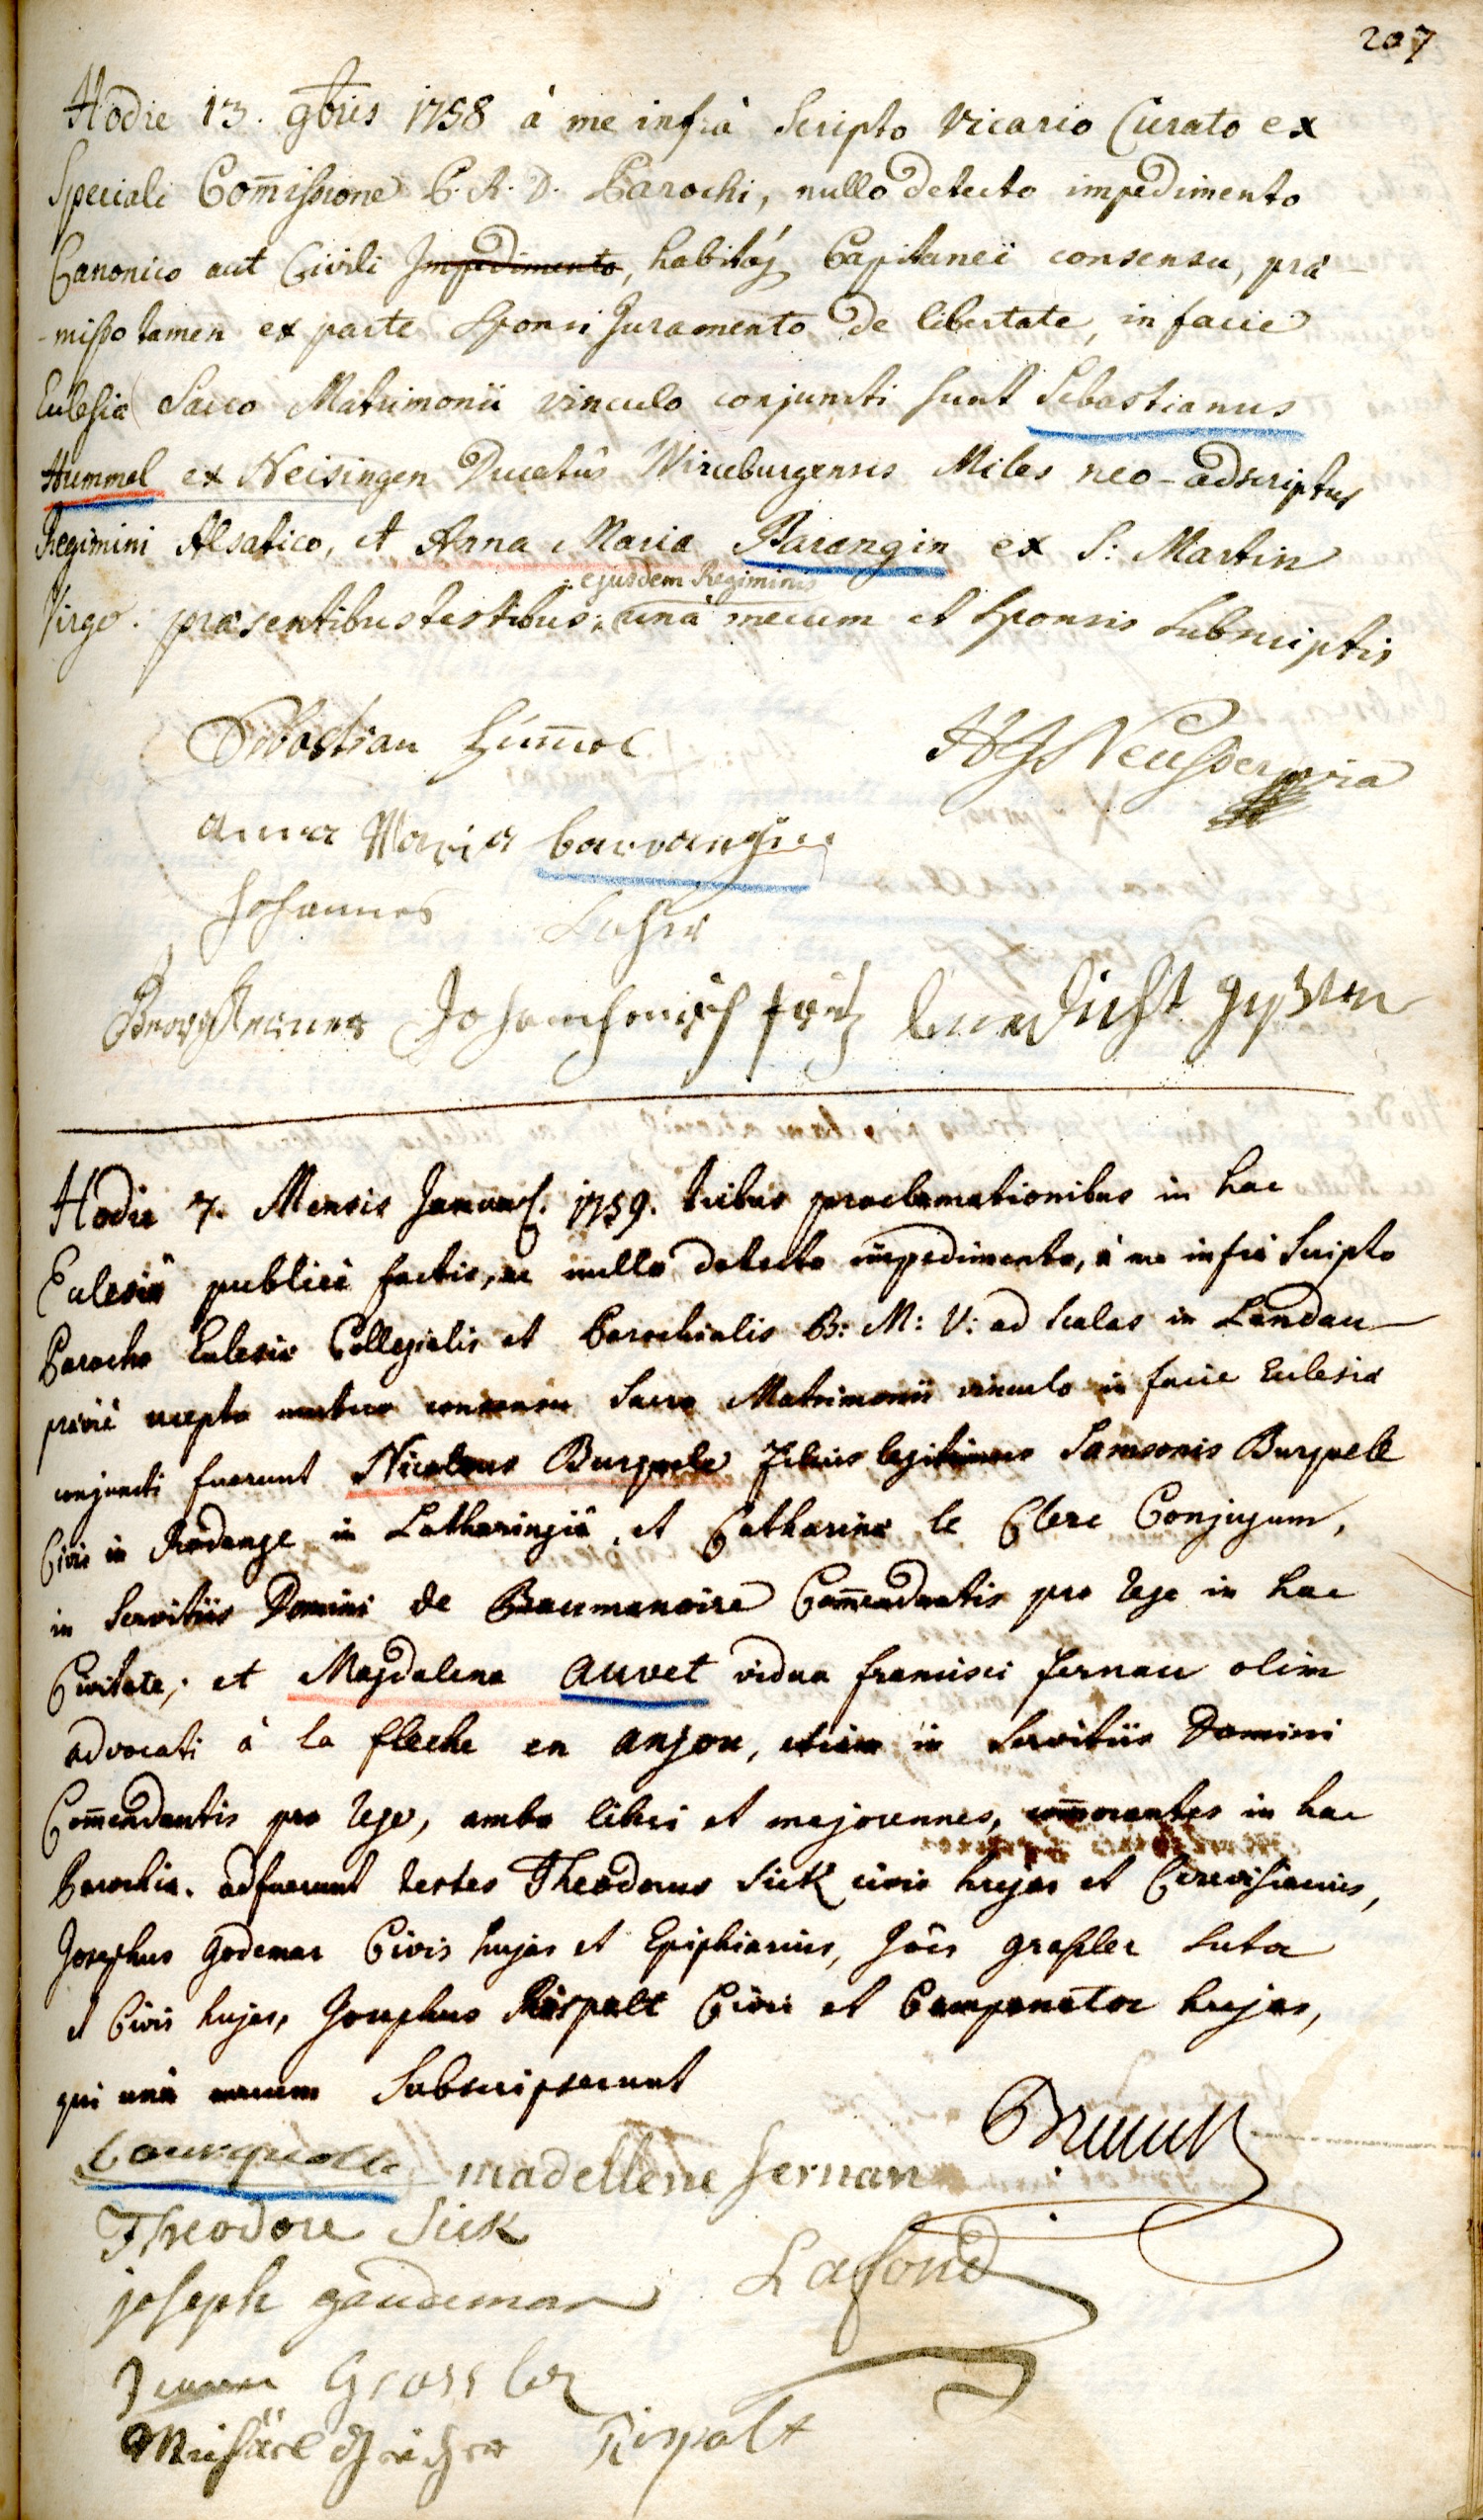 207
Hodie 13. 9bris 1758 à me infrà Scripto Vicario Curato ex
Speciali Com̄issione P. R. D. Parochi, nullo detecto impedimento
Canonico aut Civili Impedimento, habitoq Capitanei consensu, præ-
-misso tamen ex parte Sponsi Juramento de libertate, in facie
Eclesiæ Sacro Matrimonii vinculo conjuncti sunt Sebastianus
Hummel ex Neisingen Ducatûs Wirceburgensis Miles neo-adscriptus
Regimini Alsatico, et Anna Maria Barangin ex S: Martin
ejusdem Regiminis
Virgo. præsentibus testibus, unà mecum et Sponsis Subscriptis
Sebastian Hum̄el
anna Maria barrangin
Johannes
benedicht
Hodie 7. Mensis Januarij. 1759. tribus proclamationibus in hac
Eclesiâ publicè factis, ac nullo detecto impedimento, à me infrà Scripto
Parocho Eclesiæ Collegialis et Parochialis B: M: V: ad Scalas in Landau
præviè accepto mutuo consensu Sacro Matrimonii vinculo in facie Eclesiæ
conjuncti fuerunt Nicolaus Burquele filius legitimus Samsonis Burquele
Civis in Rodange in Lotharingiâ, et Catharinæ le Clerc Conjugum,
in Servitiis Domini de Beaumanoire Com̄endantis pro rege in hac
Civitate; et Magdalena auvet vidua francisci fernau olim
advocati à la fleche en anjou, etiam in Servitiis Domini
Com̄endantis pro rege, ambo liberi et majorennes, com̄orantes in hac
Parochia. adfuerunt testes Theodorus Sick civis hujas et Cerevisiarius,
Josephus godemar Civis hujas et Ephipiarius, Jôes grassler Sutor
et Civis hujas, Josephus Rispalt Civis et Campanator hujas,
qui unà mecum Subscripserunt
bourquelle madellene fernan
Theodore Sick
joseph gaudemar Lafond
Grassler
Michael Rispalt